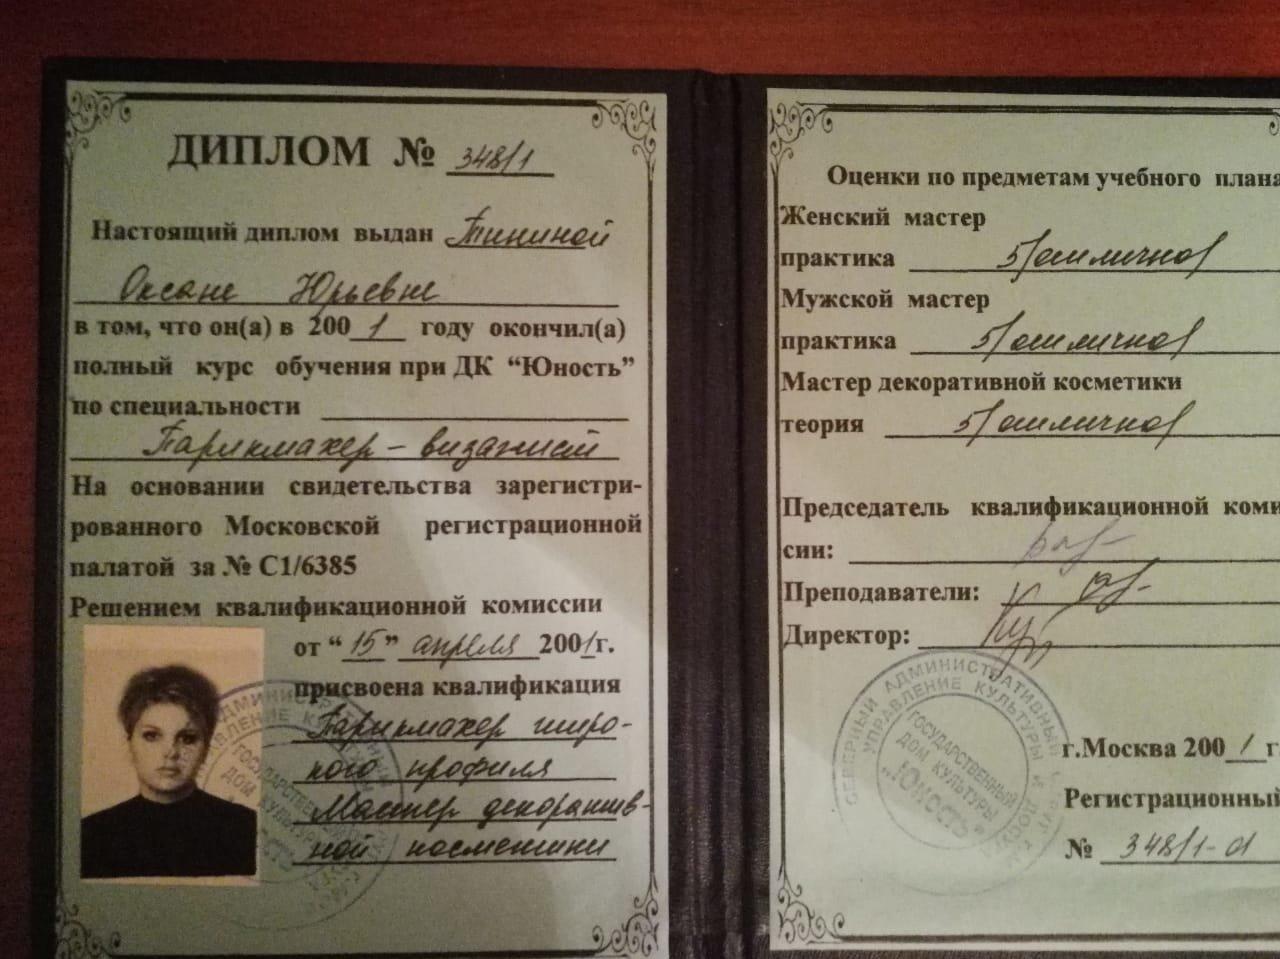 ДИПЛОМ № 348/1
Настоящий диплом выдан Тининой
Оксане Юрьевне
в том, что он(а) в 2001 году окончил(а)
полный курс обучения при ДК “Юность”
по специальности
Парикмахер – визажист
На основании свидетельства зарегистри-
рованного Московской регистрационной
палатой за № С1/6385
Решением квалификационной комиссии
от “15” апреля 2001г.
присвоена квалификация
Парикмахер широ-
кого профиля
Мастер декоратив-
ной косметики
Оценки по предметам учебного плана
Женский мастер
практика 5/отлично/
Мужской мастер
практика 5/отлично/
Мастер декоративной косметики
теория 5/отлично/
Председатель квалификационной комис
сии:
Преподаватели:
Директор:
СЕВЕРНЫЙ АДМИНИСТРАТИВНЫЙ ОКРУГ
УПРАВЛЕНИЕ КУЛЬТУРЫ И ДОСУГА
ГОСУДАРСТВЕННЫЙ
ДОМ КУЛЬТУРЫ
„ЮНОСТЬ“
г.Москва 2001 г
Регистрационный
№ 348/1-01